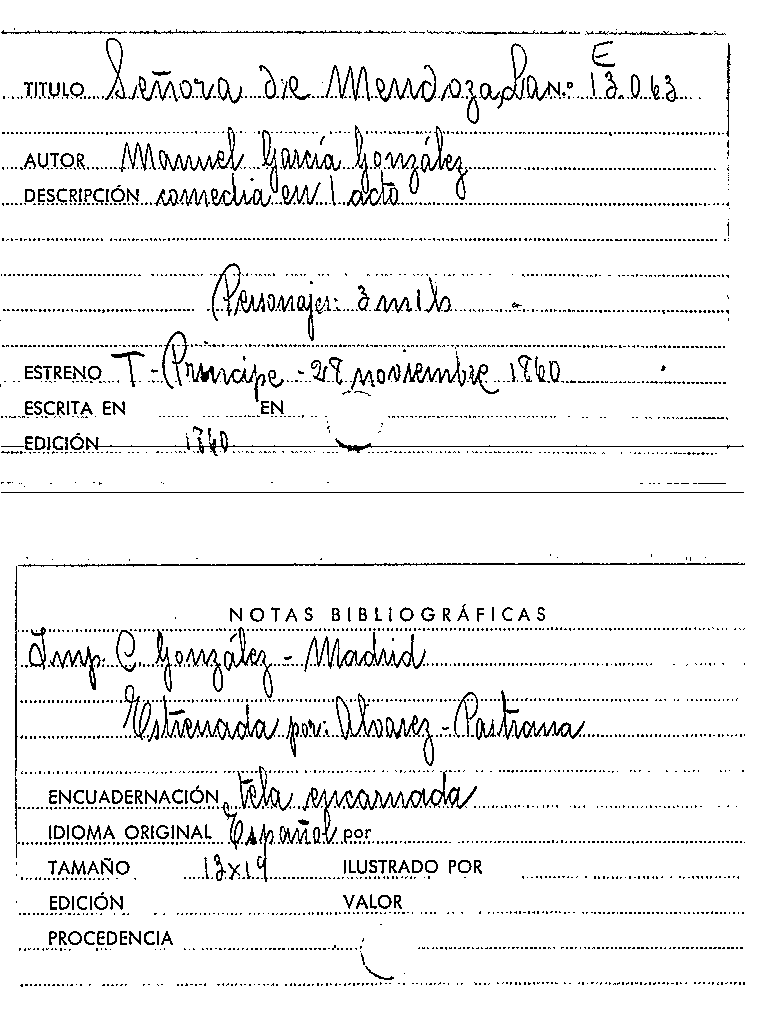 E
TITULO Señora de Mendoza, La N.º 13.063
AUTOR Manuel García González
DESCRIPCIÓN comedia en 1 acto
Personajes: 3 m 1 h
ESTRENO T - Príncipe - 28 noviembre 1860
ESCRITA EN EN
EDICIÓN 1860
NOTAS BIBLIOGRÁFICAS
Imp. C. González - Madrid
Estrenada por: Alvarez - Pastrana
ENCUADERNACIÓN tela encarnada
IDIOMA ORIGINAL Español por
TAMAÑO 13x19 ILUSTRADO POR
EDICIÓN VALOR
PROCEDENCIA